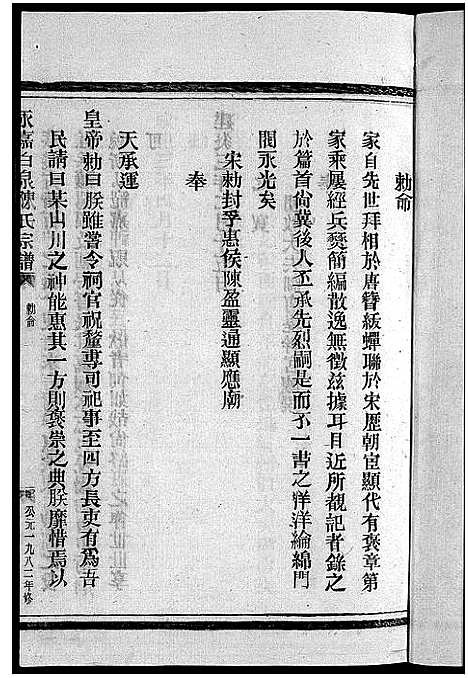 勅命
家自先世拜相於唐簪紱蟬聯於宋歷朝宦顯代有褒章第
家乘屢經兵燹簡編散逸無徵茲據耳目近所覩記者錄之
於篇首尚冀後人丕承先烈嗣是而不一書之洋洋綸綿門
閭永光矣
宋勅封孚惠侯陳盈靈通顯應廟
奉
天承運
皇帝勅曰朕雖嘗令祠官祝釐專司祀事至四方長吏有爲吾
民請曰某山川之神能惠其一方則褒崇之典朕靡惜焉以
永嘉白泉陳氏宗譜
勅命
公元一九八二年修